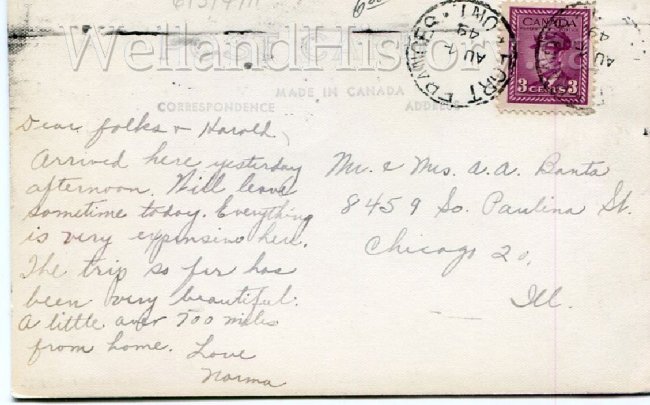 WellandHistor
CANADA
3 CENTS 3
FORT
ONT.
AU 1
49
MADE IN CANADA
CORRESPONDENCE
ADDRESS
Dear folks & Harold,
Arrived here yesterday
afternoon. Will leave
sometime today. Everything
is very expensive here.
The trip so far has
been very beautiful.
A little over 500 miles
from home. Love
Norma
Mr. & Mrs. A. A. Banta
8459 So. Paulina St.
Chicago 20,
Ill.